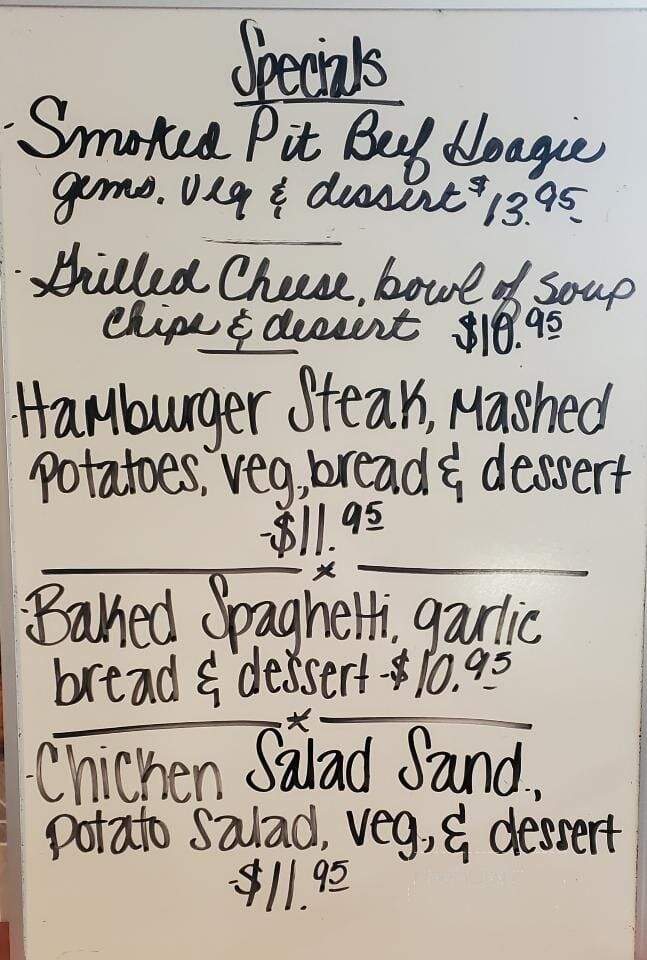 Specials
- Smoked Pit Beef Hoagie
gems, veg & dessert $13.95
- Grilled Cheese, bowl of soup
chips & dessert $10.95
- Hamburger Steak, Mashed
potatoes, veg, bread & dessert
-$11.95
- Baked Spaghetti, garlic
bread & dessert -$10.95
- Chicken Salad Sand.,
potato salad, veg., & dessert
-$11.95